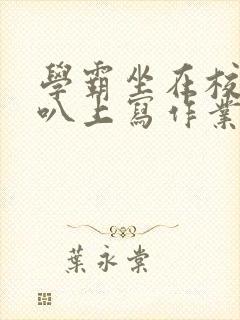 學霸坐在校
叭上寫作業
葉永棠